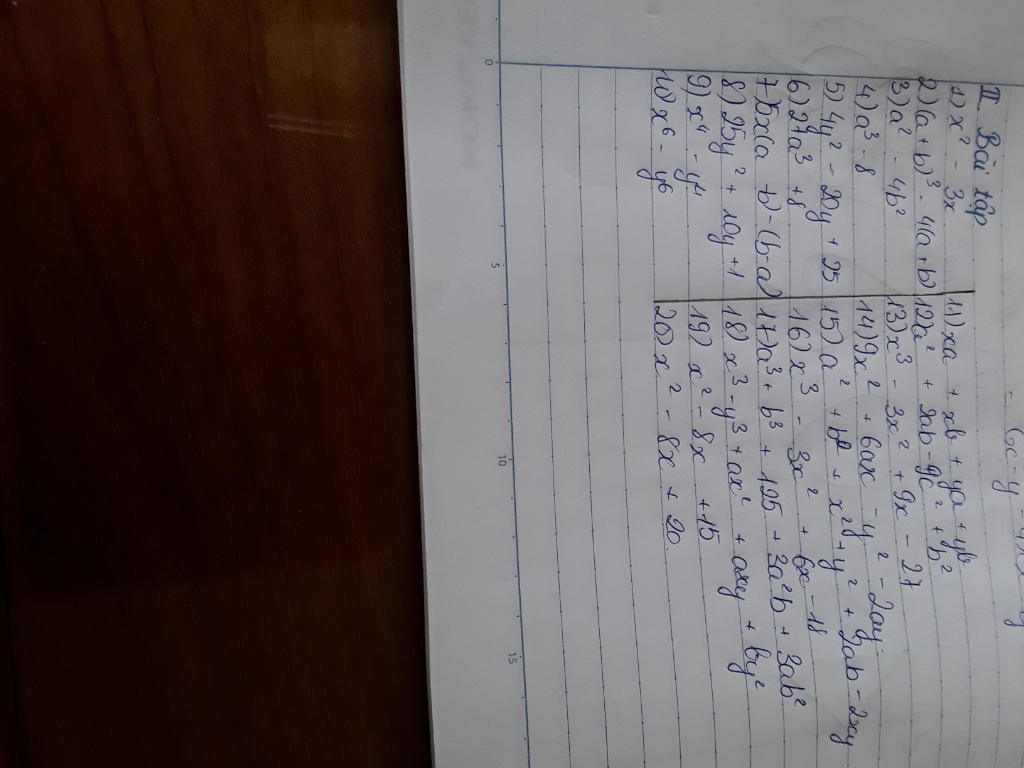 (x - y
II Bài tập
1) x² - 3x
2) (a + b)³ - 4(a + b)
3) a² - 4b²
4) a³ - 8
5) 4y² - 20y + 25
6) 27a³ + 1
7) 5x(a - b) - (b - a)
8) 25y² + 10y + 1
9) x⁴ - y⁴
10) x⁶ - y⁶
11) xa + xb + ya + yb
12) a² + 2ab - 9c² + b²
13) x³ - 3x² + 9x - 27
14) 9x² + 6ax - y² - 2ay
15) a² + b² + x² + y² + 2ab - 2xy
16) x³ - 3x² + 6x - 18
17) a³ + b³ + 125 + 3a²b + 3ab²
18) x³ - y³ + ax² + axy + by²
19) x² - 8x + 15
20) x² - 8x + 20
0
5
10
15